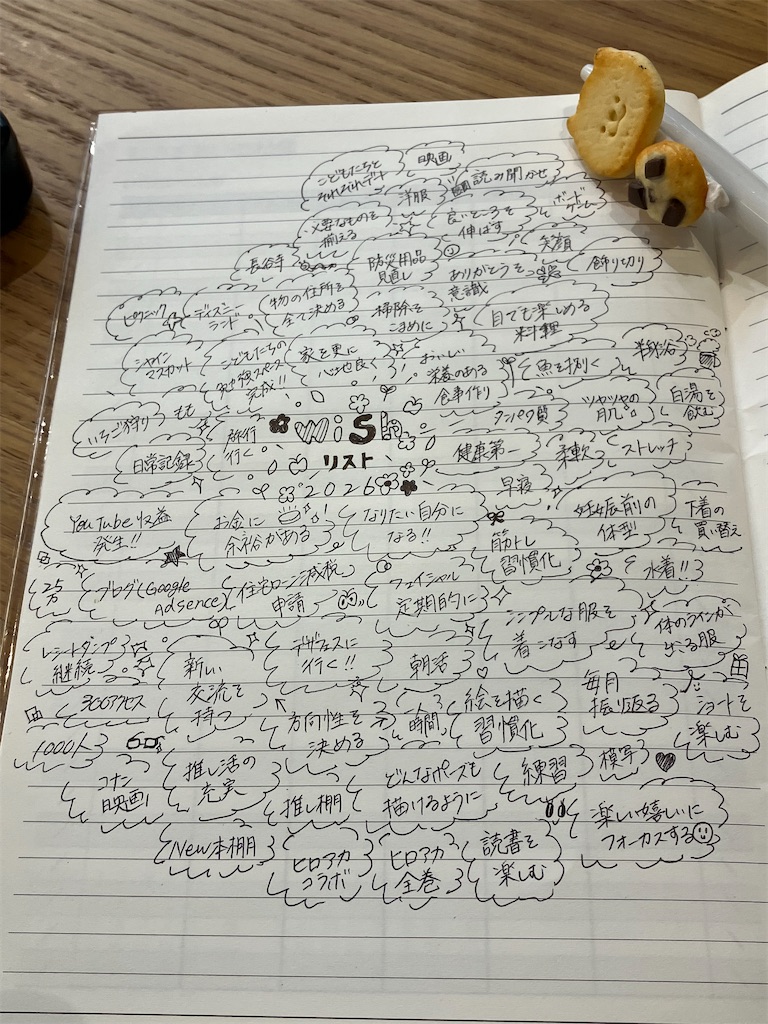 こどもたちと
それぞれデート
映画
洋服
読み聞かせ
ボード
ゲーム
必要なものを
揃える
良いところを
伸ばす
笑顔
長谷寺
防災用品
見直し
ありがとうを
意識
飾り切り
ピクニック
ディズニー
ランド
物の住所を
全て決める
掃除を
こまめに
目でも楽しめる
料理
シャイン
マスカット
こどもたちの
勉強スペース
完成!!
家を更に
心地良く
おいしい
栄養のある
食事作り
魚を捌く
半身浴
いちご狩り
もも
旅行
行く
wish
リスト
2026
タンパク質
ツヤツヤの
肌
白湯を
飲む
日常記録
健康第一
柔軟
ストレッチ
YouTube収益
発生!!
お金に
余裕がある
なりたい自分に
なる!!
早寝
筋トレ
習慣化
妊娠前の
体型
下着の
買い替え
2.5
万
ブログ(Google
Adsence)
住宅ローン減税
申請
フェイシャル
定期的に
水着!!
レシートタンプ
継続
新しい
交流を
持つ
デザフェスに
行く!!
朝活
シンプルな服を
着こなす
体のラインが
出る服
300アクセス
1000人
方向性を
決める
時間
絵を描く
習慣化
毎月
振り返る
ショートを
楽しむ
コナン
映画
推し活の
充実
推し棚
どんなポーズも
描けるように
練習
模写
楽しい嬉しいに
フォーカスする
New本棚
ヒロアカ
コラボ
ヒロアカ
全巻
読書を
楽しむ